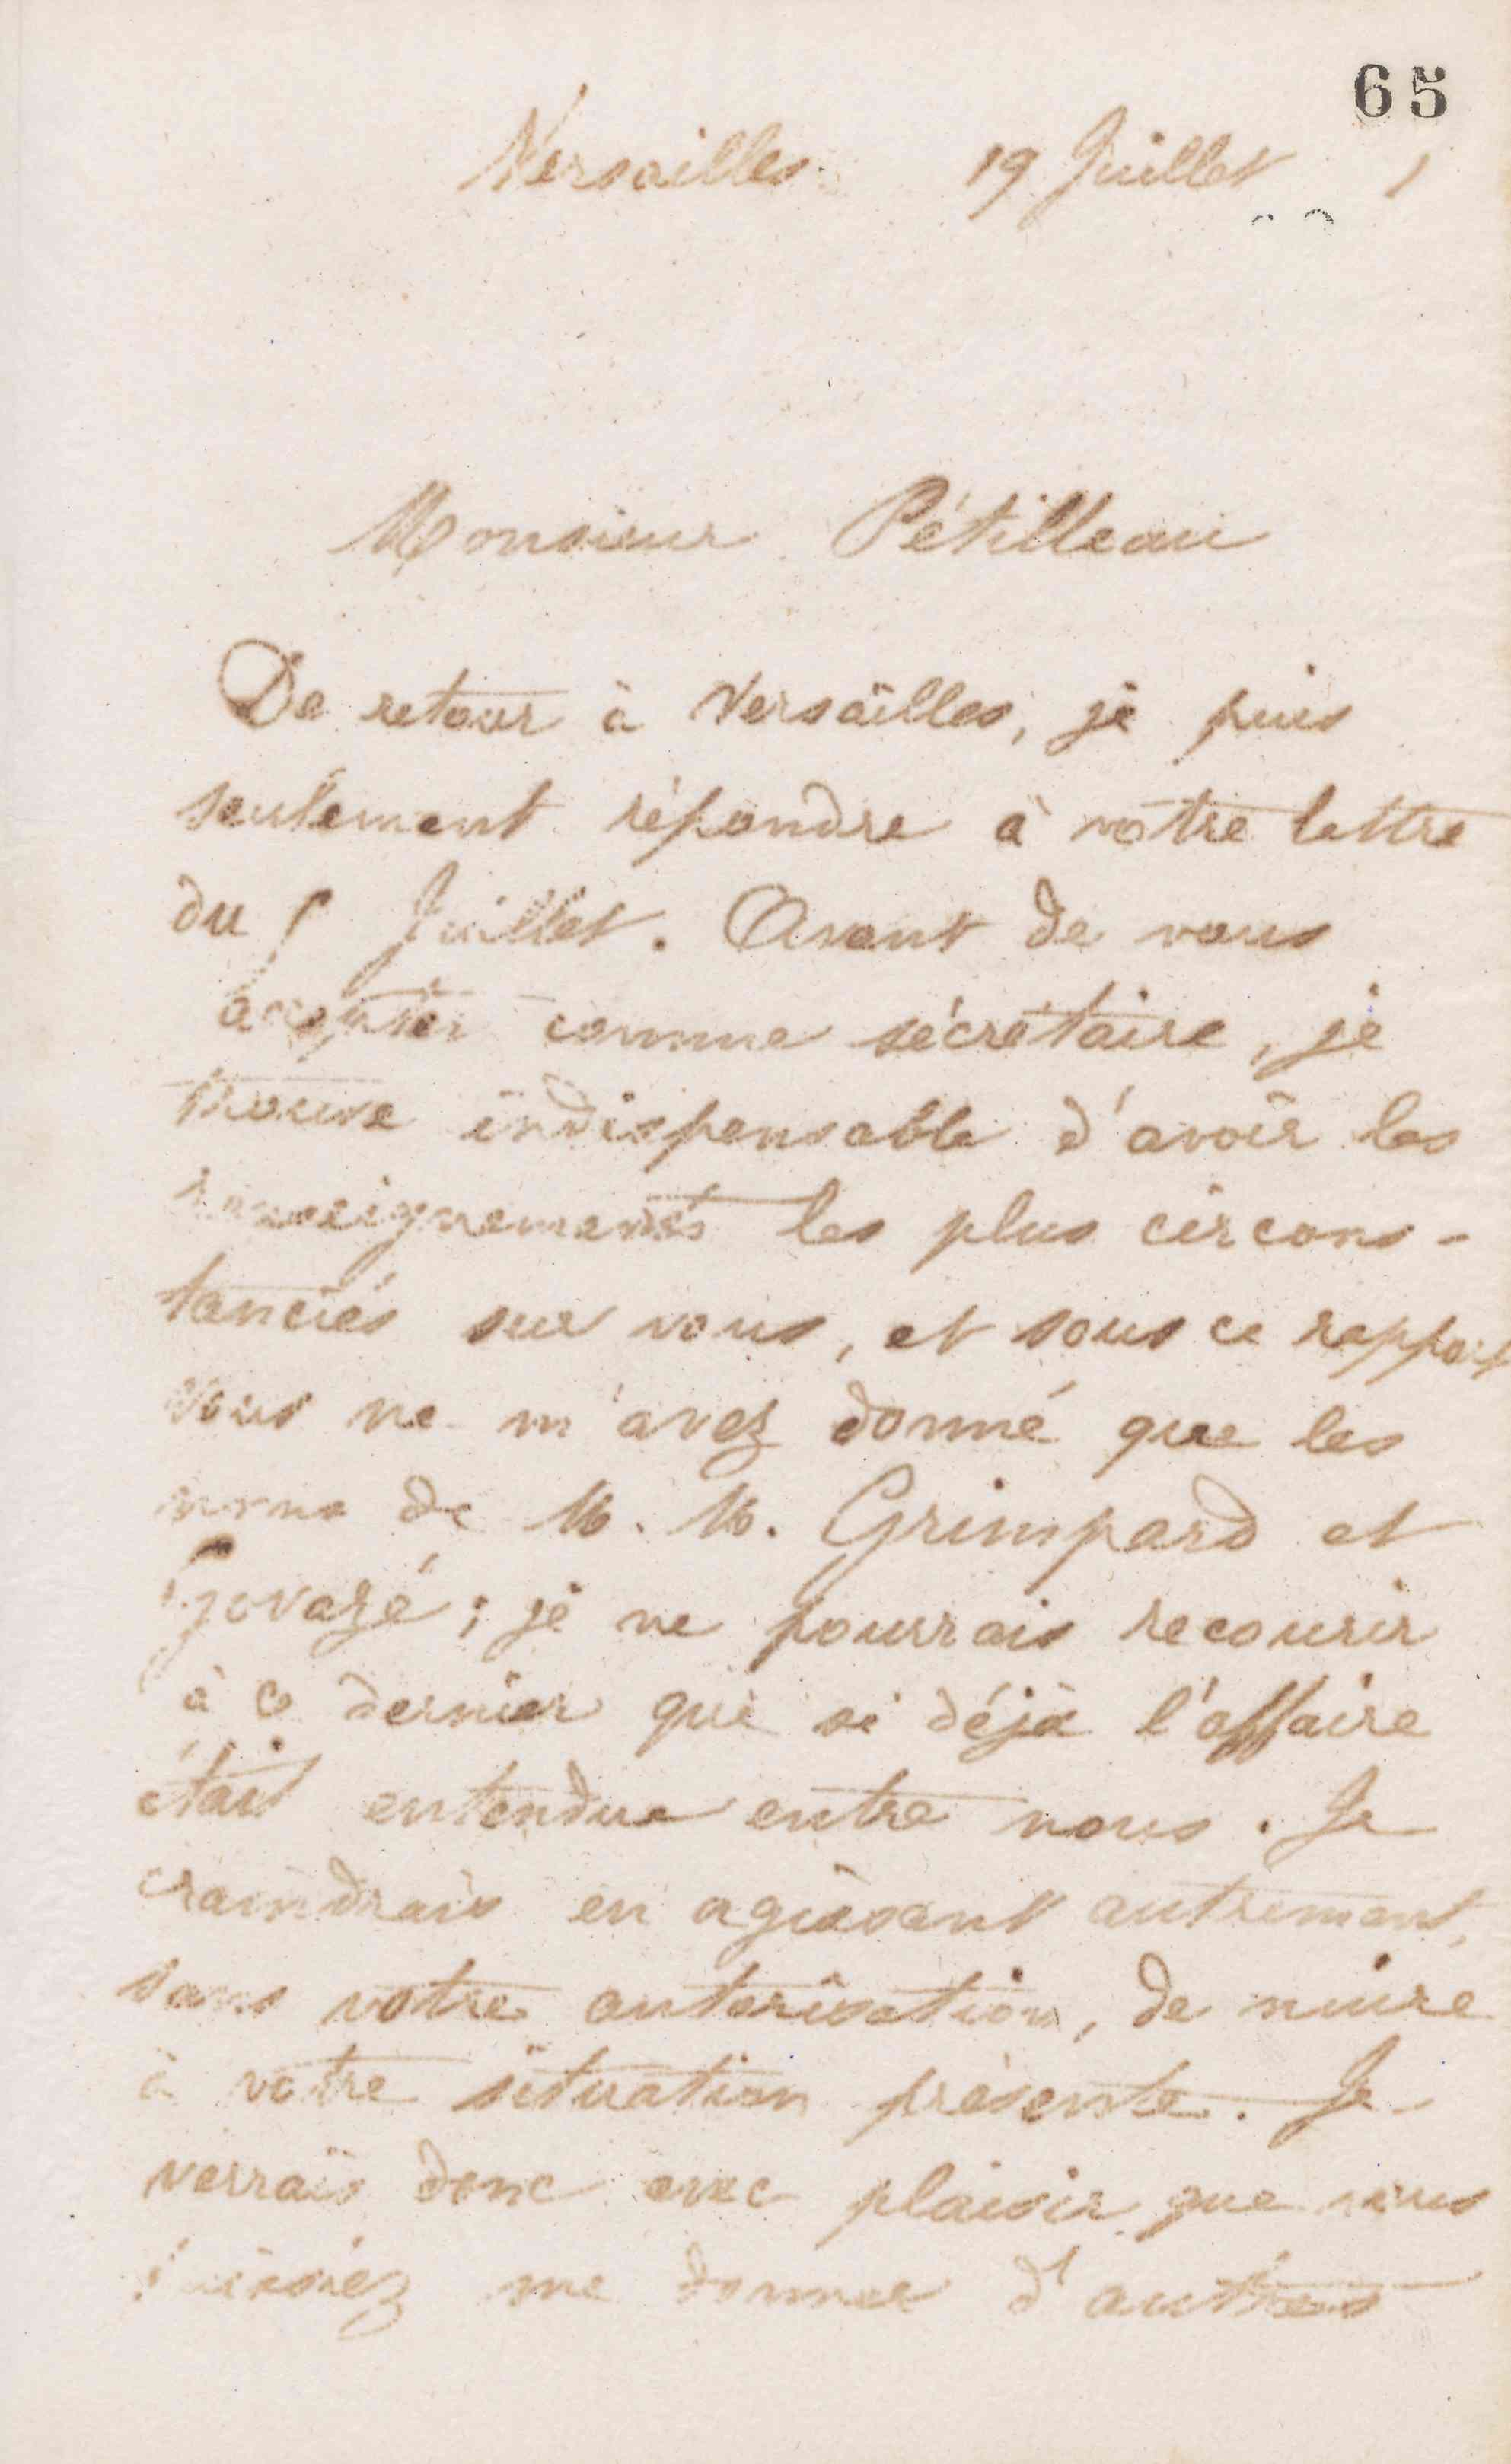 65
Versailles 19 Juillet
Monsieur Pétilleau
De retour à Versailles, je puis
seulement répondre à votre lettre
du Juillet. Avant de vous
accepter comme sécrétaire, je
trouve indispensable d'avoir les
renseignements les plus circons-
tanciés sur vous, et sous ce rapport
vous ne m'avez donné que les
noms de M. M. Grimpard et
; je ne pourrais recourir
à ce dernier que si déjà l'affaire
était entendue entre nous. Je
craindrais en agissant autrement,
sans votre autorisation, de nuire
à votre situation présente. Je
verrais donc avec plaisir que vous
puissiez me donner d'autres